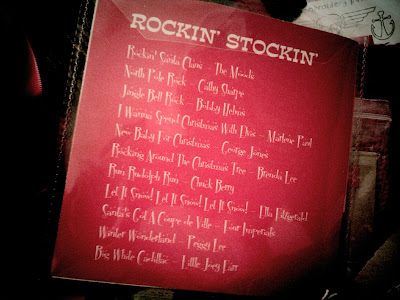 ROCKIN' STOCKIN'
Rockin' Santa Claus – The Moods
North Pole Rock – Cathy Sharpe
Jingle Bell Rock – Bobby Helms
I Wanna Spend Christmas With Elvis – Marlene Paul
New Baby For Christmas – George Jones
Rocking Around The Christmas Tree – Brenda Lee
Run Rudolph Run – Chuck Berry
Let It Snow! Let It Snow! Let It Snow! – Ella Fitzgerald
Santa's Got A Coupe de Ville – Four Imperials
Winter Wonderland – Peggy Lee
Big White Cadillac – Little Joey Farr